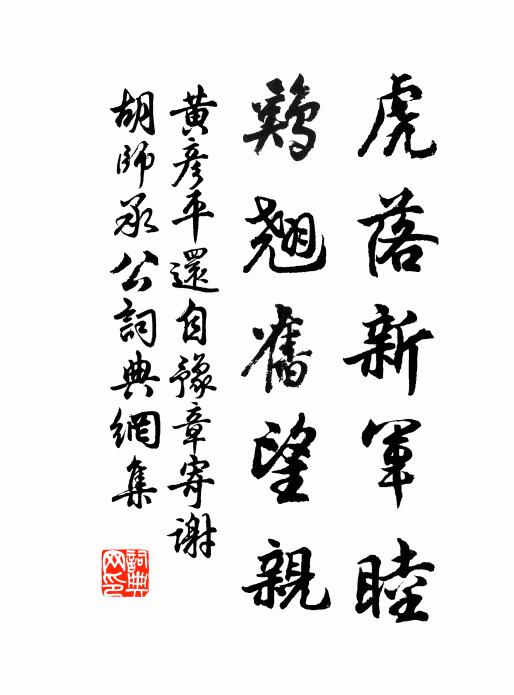 虎落新軍睦
鷄翹舊望親
黃彥平還自豫章寄謝
胡師承公詞典網集
詞典
网印